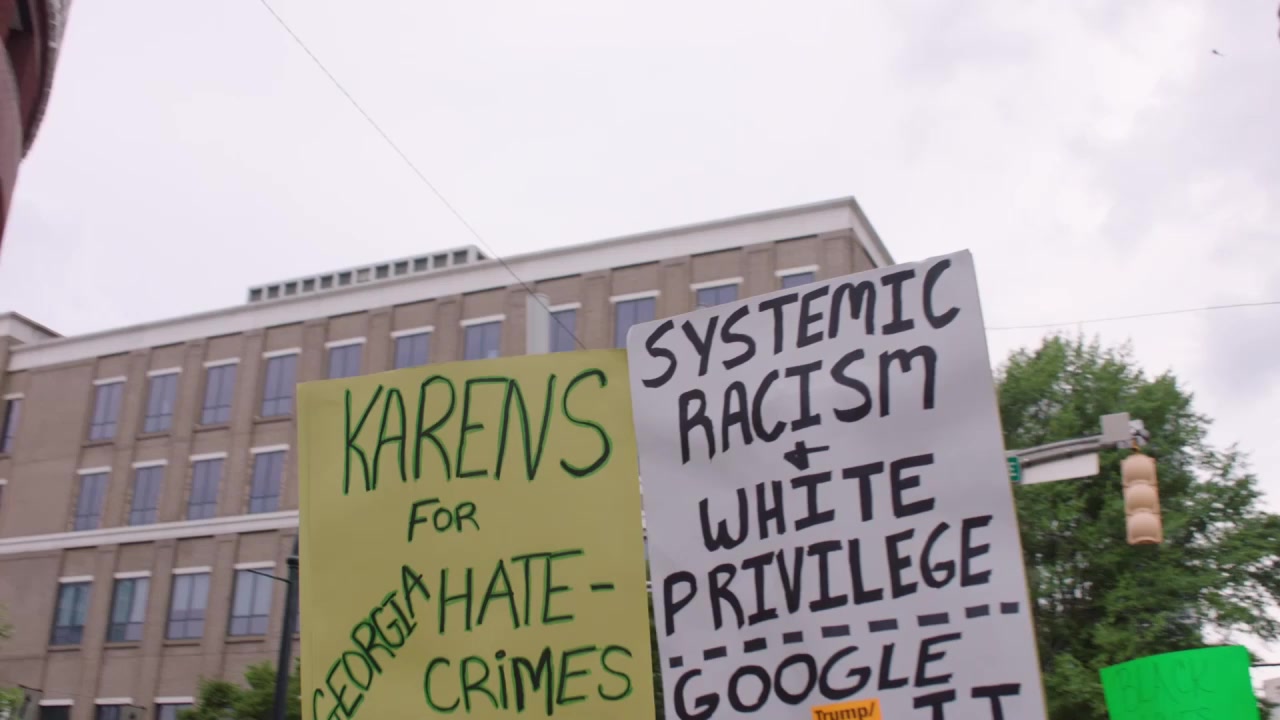 KARENS
FOR
GEORGIA
HATE-
CRiMES
SYSTEMIC
RACISM
+
WHITE
PRIVILEGE
GOOGLE
IT
Trump/
BLACK